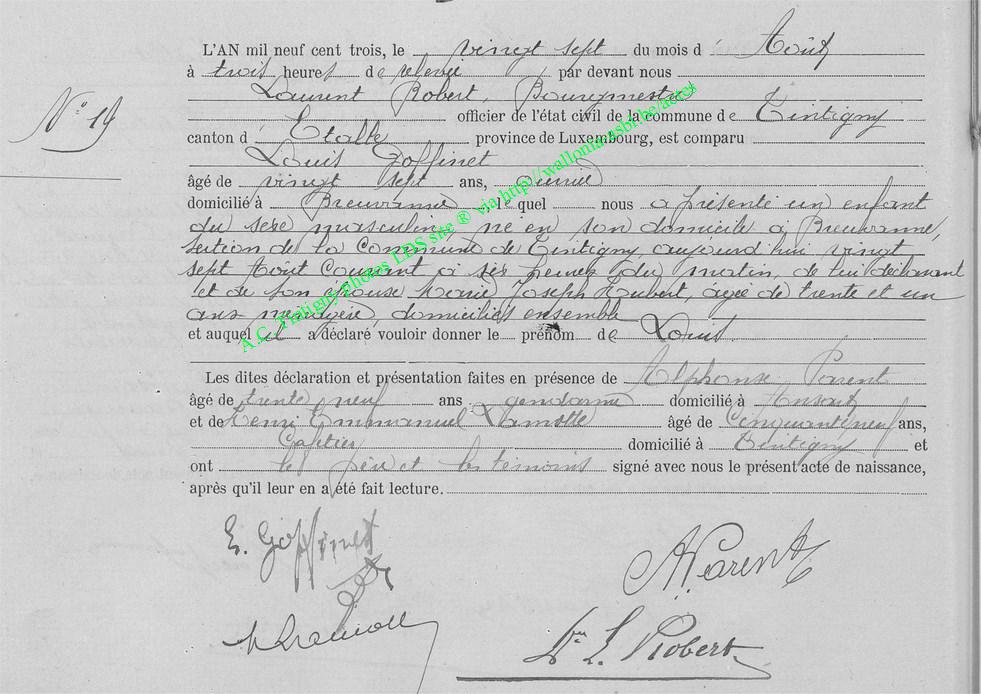 N° 19
L'AN mil neuf cent trois, le vingt sept du mois d' Août
à trois heures de relevée par devant nous
Laurent Robert, Bourgmestre
officier de l'état civil de la commune de Tintigny
canton d' Etalle province de Luxembourg, est comparu
Louis Goffinet
âgé de vingt sept ans,
domicilié à Breuvanne lequel nous a présenté un enfant
du sexe masculin, né en son domicile à Breuvanne,
section de la Commune de Tintigny, aujourd'hui vingt
sept Août Courant à six heures du matin, de lui déclarant
et de son épouse Marie Joseph Hubert, âgée de trente et un
ans ménagère, domiciliés ensemble
et auquel il a déclaré vouloir donner le prénom de Louis.
Les dites déclaration et présentation faites en présence de Alphonse Parent
âgé de trente neuf ans gendarme domicilié à
et de Henri Emmanuel Lamotte âgé de Cinquante neuf ans,
Cafetier domicilié à Tintigny et
ont le père et les témoins signé avec nous le présent acte de naissance,
après qu'il leur en a été fait lecture.
Goffinet
A. Parent
L. Robert
A.C. Tintigny photos LDS site ® via http://wallonia.asbr.be/actes